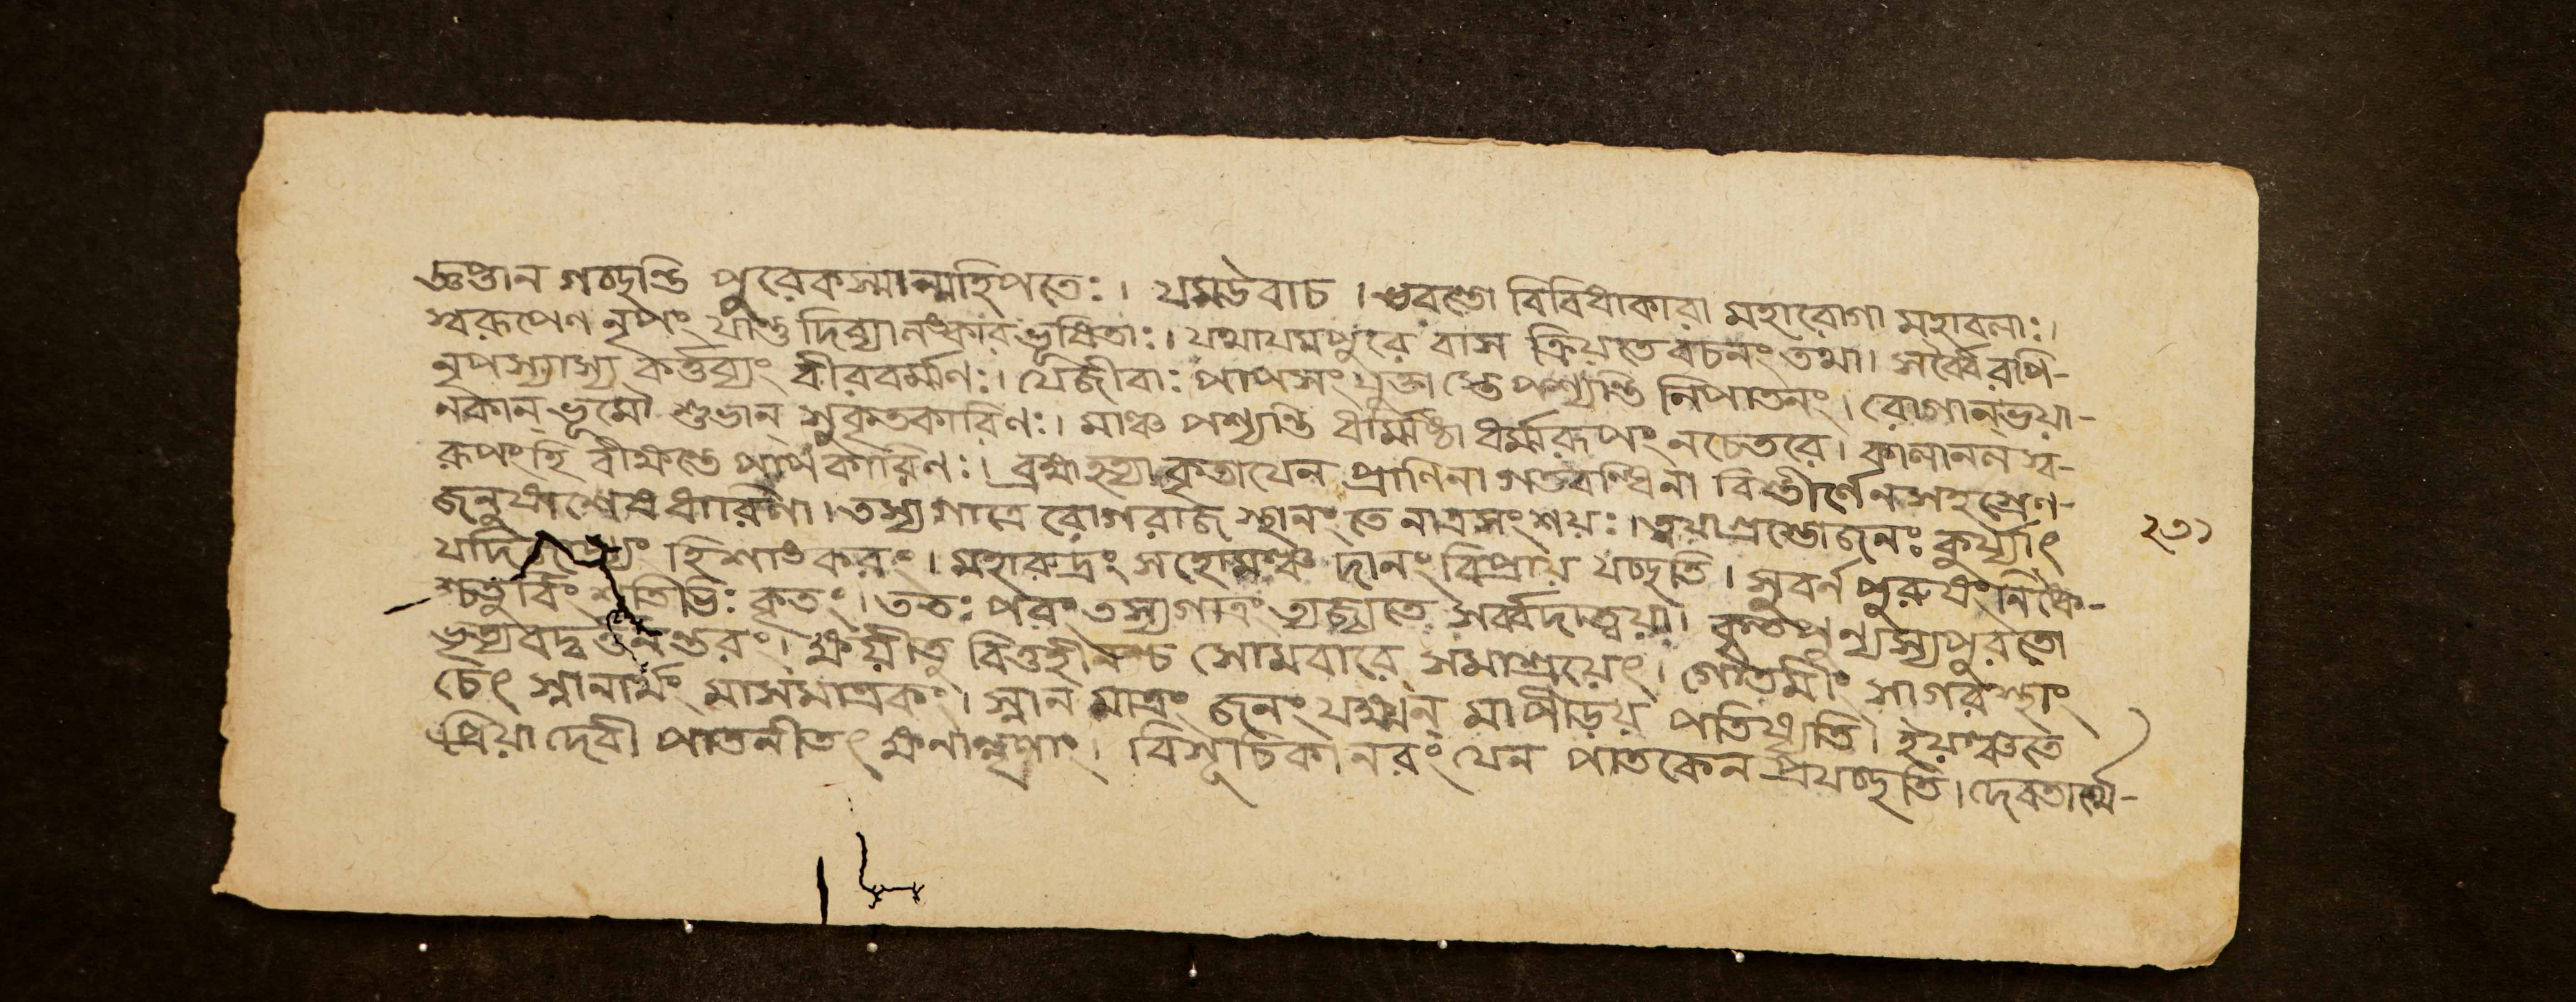 জ্ঞপ্তান গচ্ছন্তি পুরেকস্মান্মহিপতেঃ। যমউবাচ। ভবন্তো বিবিধাকারা মহারোগা মহাবলাঃ।
স্বরূপেণ নৃপং যান্তু দিব্যানংকারভূষিতাঃ। যথাযমপুরে বাস ক্রিয়তে বচনং তথা। সর্ব্বৈরপি-
নৃপস্যাস্য কর্ত্তব্যং বীরবর্ম্মণঃ। যেজীবাঃ পাপসংযুক্তাস্তে পশ্যন্তি নিপাতনং। রোগান্ভয়া-
নকান্ ভূমৌ শুভান্ সুকৃতকারিণঃ। মাঞ্চ পশ্যন্তি ধর্মিষ্ঠা ধর্ম্মরূপং নচেতরে। কালাননস্ব-
রূপংহি বীক্ষন্তে পাপকারিণঃ। ব্রহ্মহত্যা কৃতাযেন প্রাণিনা গতবন্ধিনা বিস্তীর্ণেনসহস্রেণ-
জনুষাশেষধারিণা। তস্যগাত্রে রোগরাজ স্থানং তে নাত্রসংশয়ঃ। ত্বয়াগ্রস্তোজনঃ কুর্য্যাৎ ২৩১
যদি হিশাতকরং। মহারুদ্রং সহোমঞ্চ দানং বিপ্রায় যচ্ছতি। সুবর্ন পুরুষং নিষ্কৈ-
শ্চতুর্বিংশতিভিঃ কৃতং। ততঃ পরং তস্যগাত্রং ত্যজ্যতে সর্ব্বদাত্বয়া। কৃতপুণ্যস্যপুরতো
ভৃত্যবদ্ব ন্তরং। ক্ষয়ীতু বিত্তহীনশ্চ সোমবারে সমাশ্রয়েৎ। গৌতমীং সাগরস্থাং
চেৎ স্নানার্থং মাসমাত্রকং। স্নান মাত্রং জনং যক্ষ্মন্ মাপীড়য় পতিষ্যতি। ইয়ঞ্চতে
প্রিয়াদেবী পাতনীতৎ ক্ষণান্নৃণাং। বিসূচিকা নরং যেন পাতকেন প্রযচ্ছতি। দেবতার্থ-